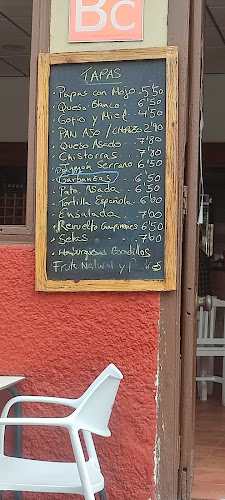 Bc
TAPAS
Papas con Mojo 5'50
Queso Blanco 6'50
Gofio y Miel 4'50
PAN AJO / CHORIZO 2'40
Queso Asado 7'80
Chistorras 7'80
Jamón Serrano 6'50
Garbanzas 6'50
Pata Asada 6'50
Tortilla Española 6'50
Ensalada 7'00
Revuelto Champiñones 6'50
Setas 7'60
Hamburguesas Bocadillos
Fruta Natural y